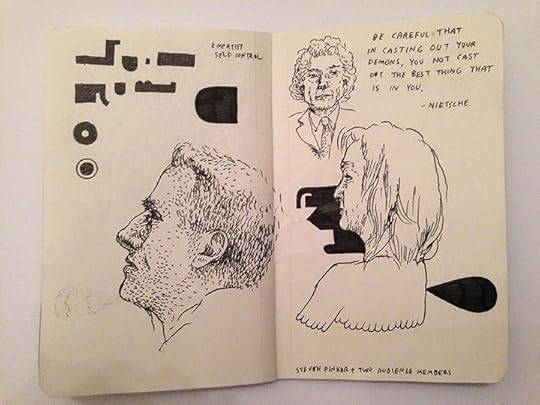 SELF CONTROL
BE CAREFUL THAT
IN CASTING OUT YOUR
DEMONS, YOU NOT CAST
OUT THE BEST THING THAT
IS IN YOU.
-NIETSCHE
STEVEN PINKER + TWO AUDIENCE MEMBERS